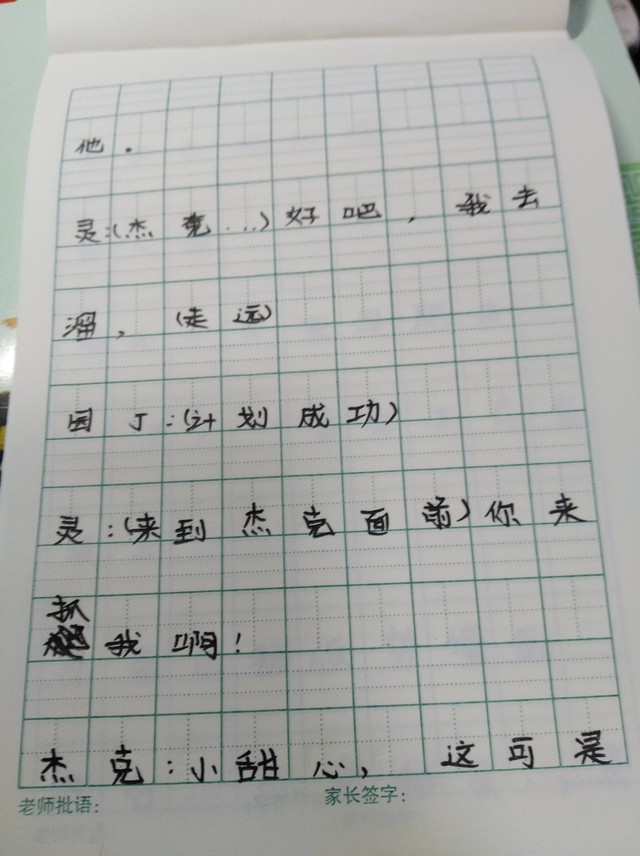 他。
灵:(杰克...)好吧,我去
溜,(走远)
园丁:(计划成功)
灵:(来到杰克面前)你来
抓我啊!
杰克:小甜心,这可是
老师批语: 家长签字: